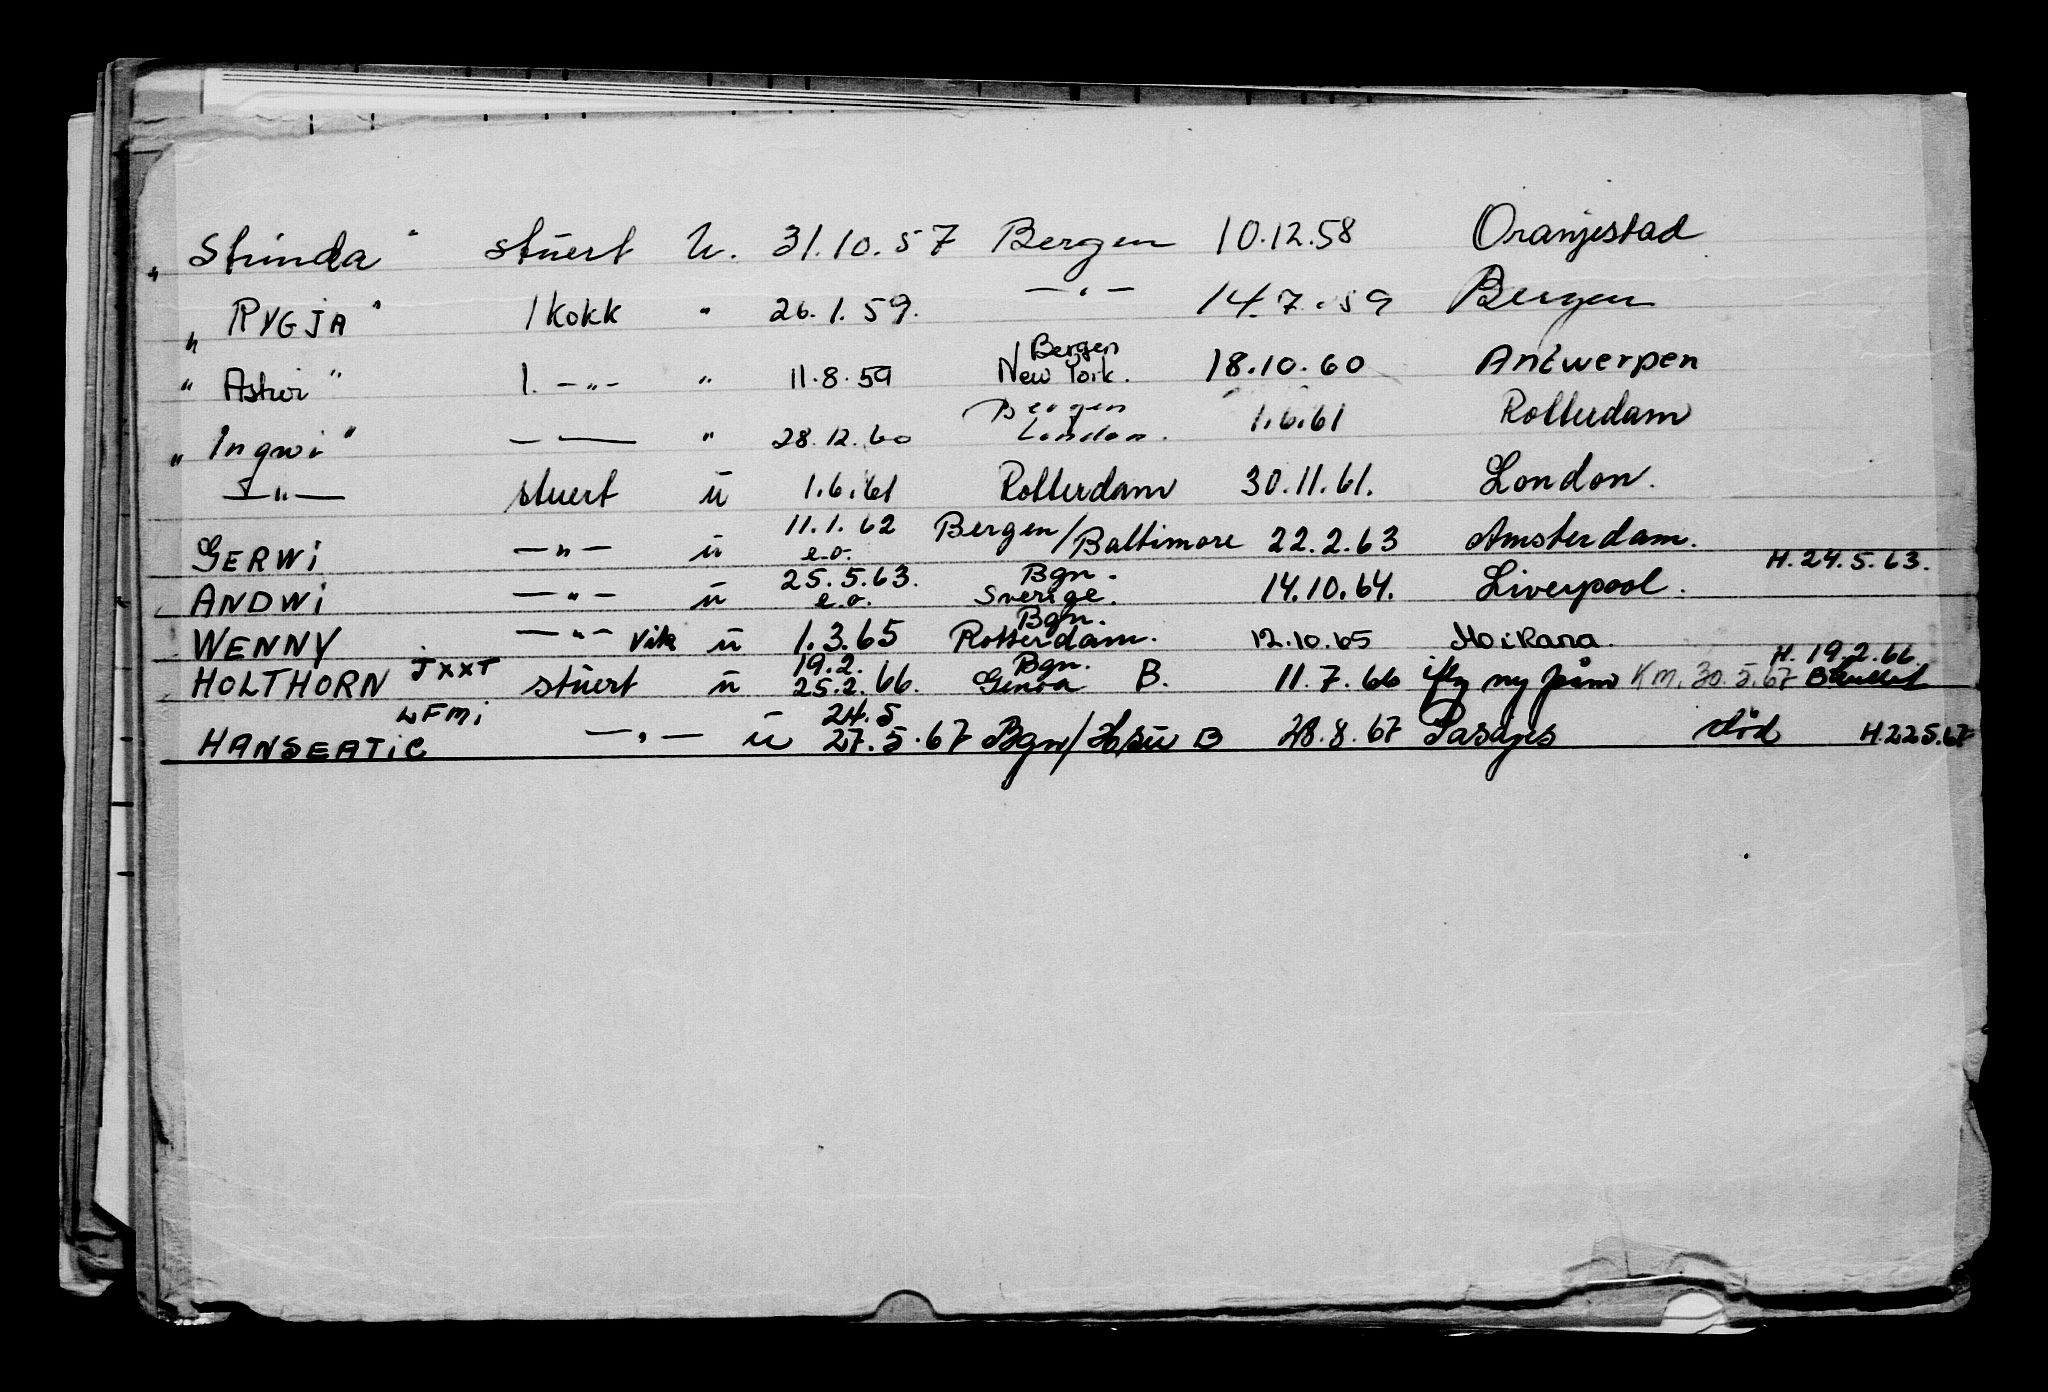 "Strinda" stuert U. 31.10.57 Bergen 10.12.58 Oranjestad
"RYGJA" 1 kokk " 26.1.59. —"— 14.7.59 Bergen
"Askvi" 1. —"— " 11.8.59 Bergen New York. 18.10.60 Antwerpen
"Ingwi" —— " 28.12.60 Bergen London. 1.6.61 Rotterdam
—"— stuert u 1.6.61 Rotterdam 30.11.61. London.
GERWI —"— u 11.1.62 e.o. Bergen/Baltimore 22.2.63 Amsterdam. H.24.5.63.
ANDWI —"— u 25.5.63. e.o. Bgn. Sverige. 14.10.64. Liverpool.
WENNY —"— vik u 1.3.65 Bgn. Rotterdam. 12.10.65 Mo i Rana.
HOLTHORN JXXT stuert u 19.2. 25.2.66. Bgn. Genoa B. 11.7.66 ny KM. 30.5.67 H. 19.2.66.
HANSEATIC LFMI —"— u 24.5 27.5.67 Bgn/ B 28.8.67 Pasajes død H.22.5.67